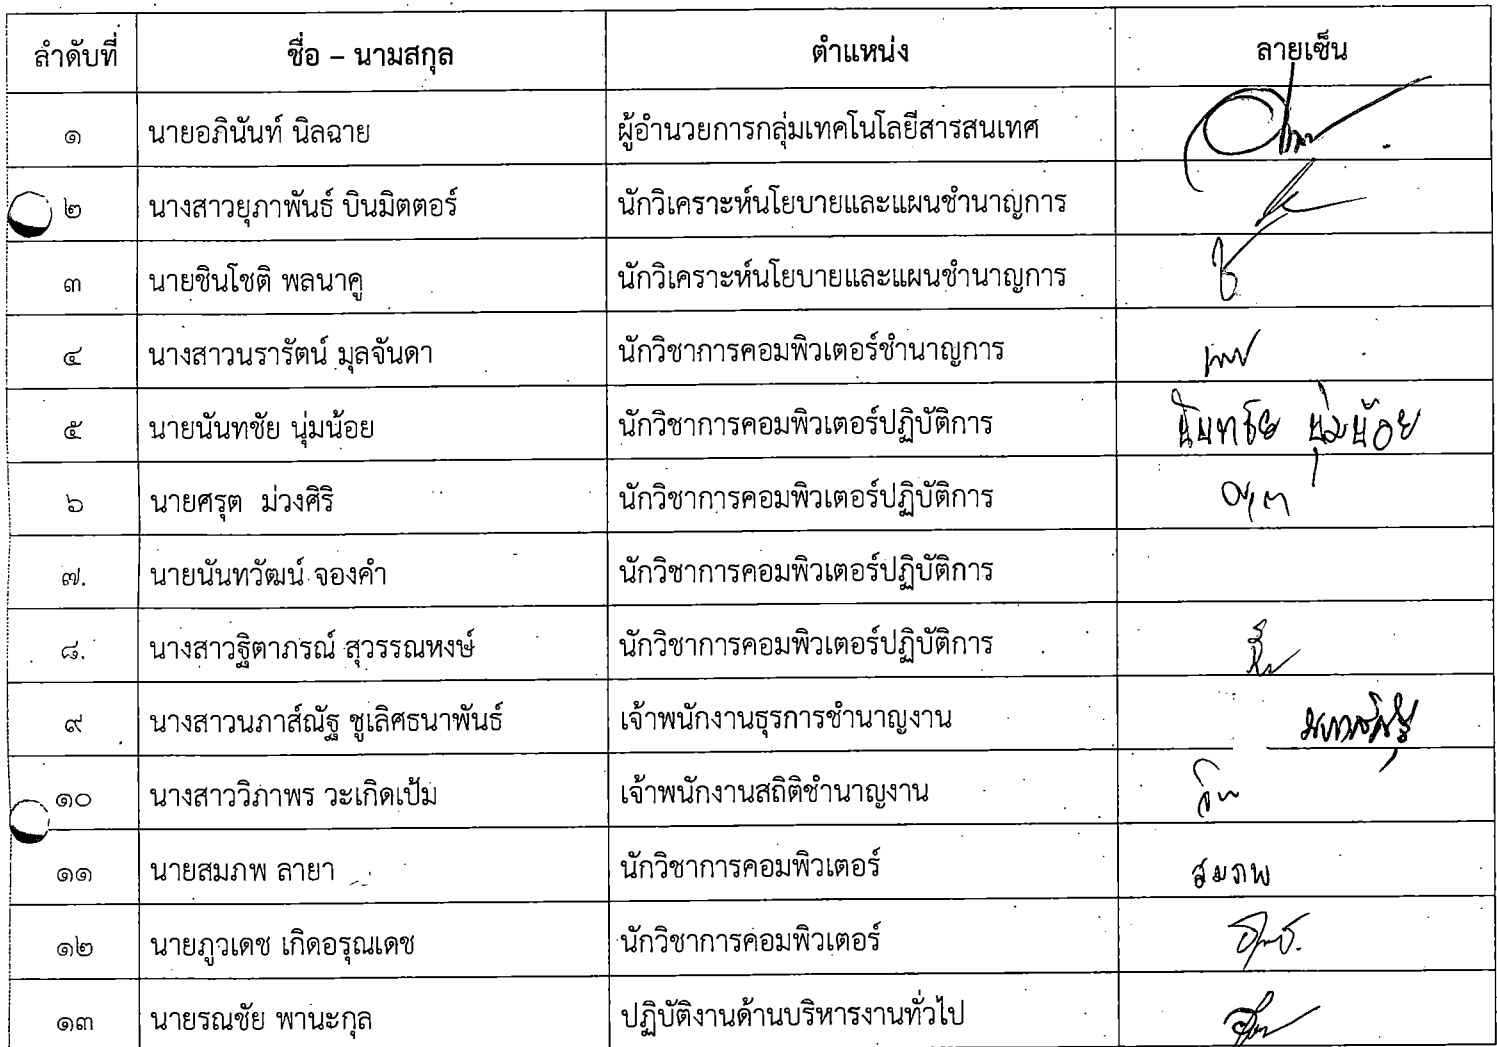 ลำดับที่ ชื่อ – นามสกุล ตำแหน่ง ลายเซ็น
๑ นายอภินันท์ นิลฉาย ผู้อำนวยการกลุ่มเทคโนโลยีสารสนเทศ
๒ นางสาวยุภาพันธ์ บินมิตตอร์ นักวิเคราะห์นโยบายและแผนชำนาญการ
๓ นายชินโชติ พลนาคู นักวิเคราะห์นโยบายและแผนชำนาญการ
๔ นางสาวนรารัตน์ มุลจันดา นักวิชาการคอมพิวเตอร์ชำนาญการ
๕ นายนันทชัย นุ่มน้อย นักวิชาการคอมพิวเตอร์ปฏิบัติการ นันทชัย นุ่มน้อย
๖ นายศรุต ม่วงศิริ นักวิชาการคอมพิวเตอร์ปฏิบัติการ
๗. นายนันทวัฒน์ จองคำ นักวิชาการคอมพิวเตอร์ปฏิบัติการ
๘. นางสาวฐิตาภรณ์ สุวรรณหงษ์ นักวิชาการคอมพิวเตอร์ปฏิบัติการ
๙ นางสาวนภาส์ณัฐ ชูเลิศธนาพันธ์ เจ้าพนักงานธุรการชำนาญงาน
๑๐ นางสาววิภาพร วะเกิดเป้ม เจ้าพนักงานสถิติชำนาญงาน
๑๑ นายสมภพ ลายา นักวิชาการคอมพิวเตอร์ สมภพ
๑๒ นายภูวเดช เกิดอรุณเดช นักวิชาการคอมพิวเตอร์
๑๓ นายรณชัย พานะกุล ปฏิบัติงานด้านบริหารงานทั่วไป